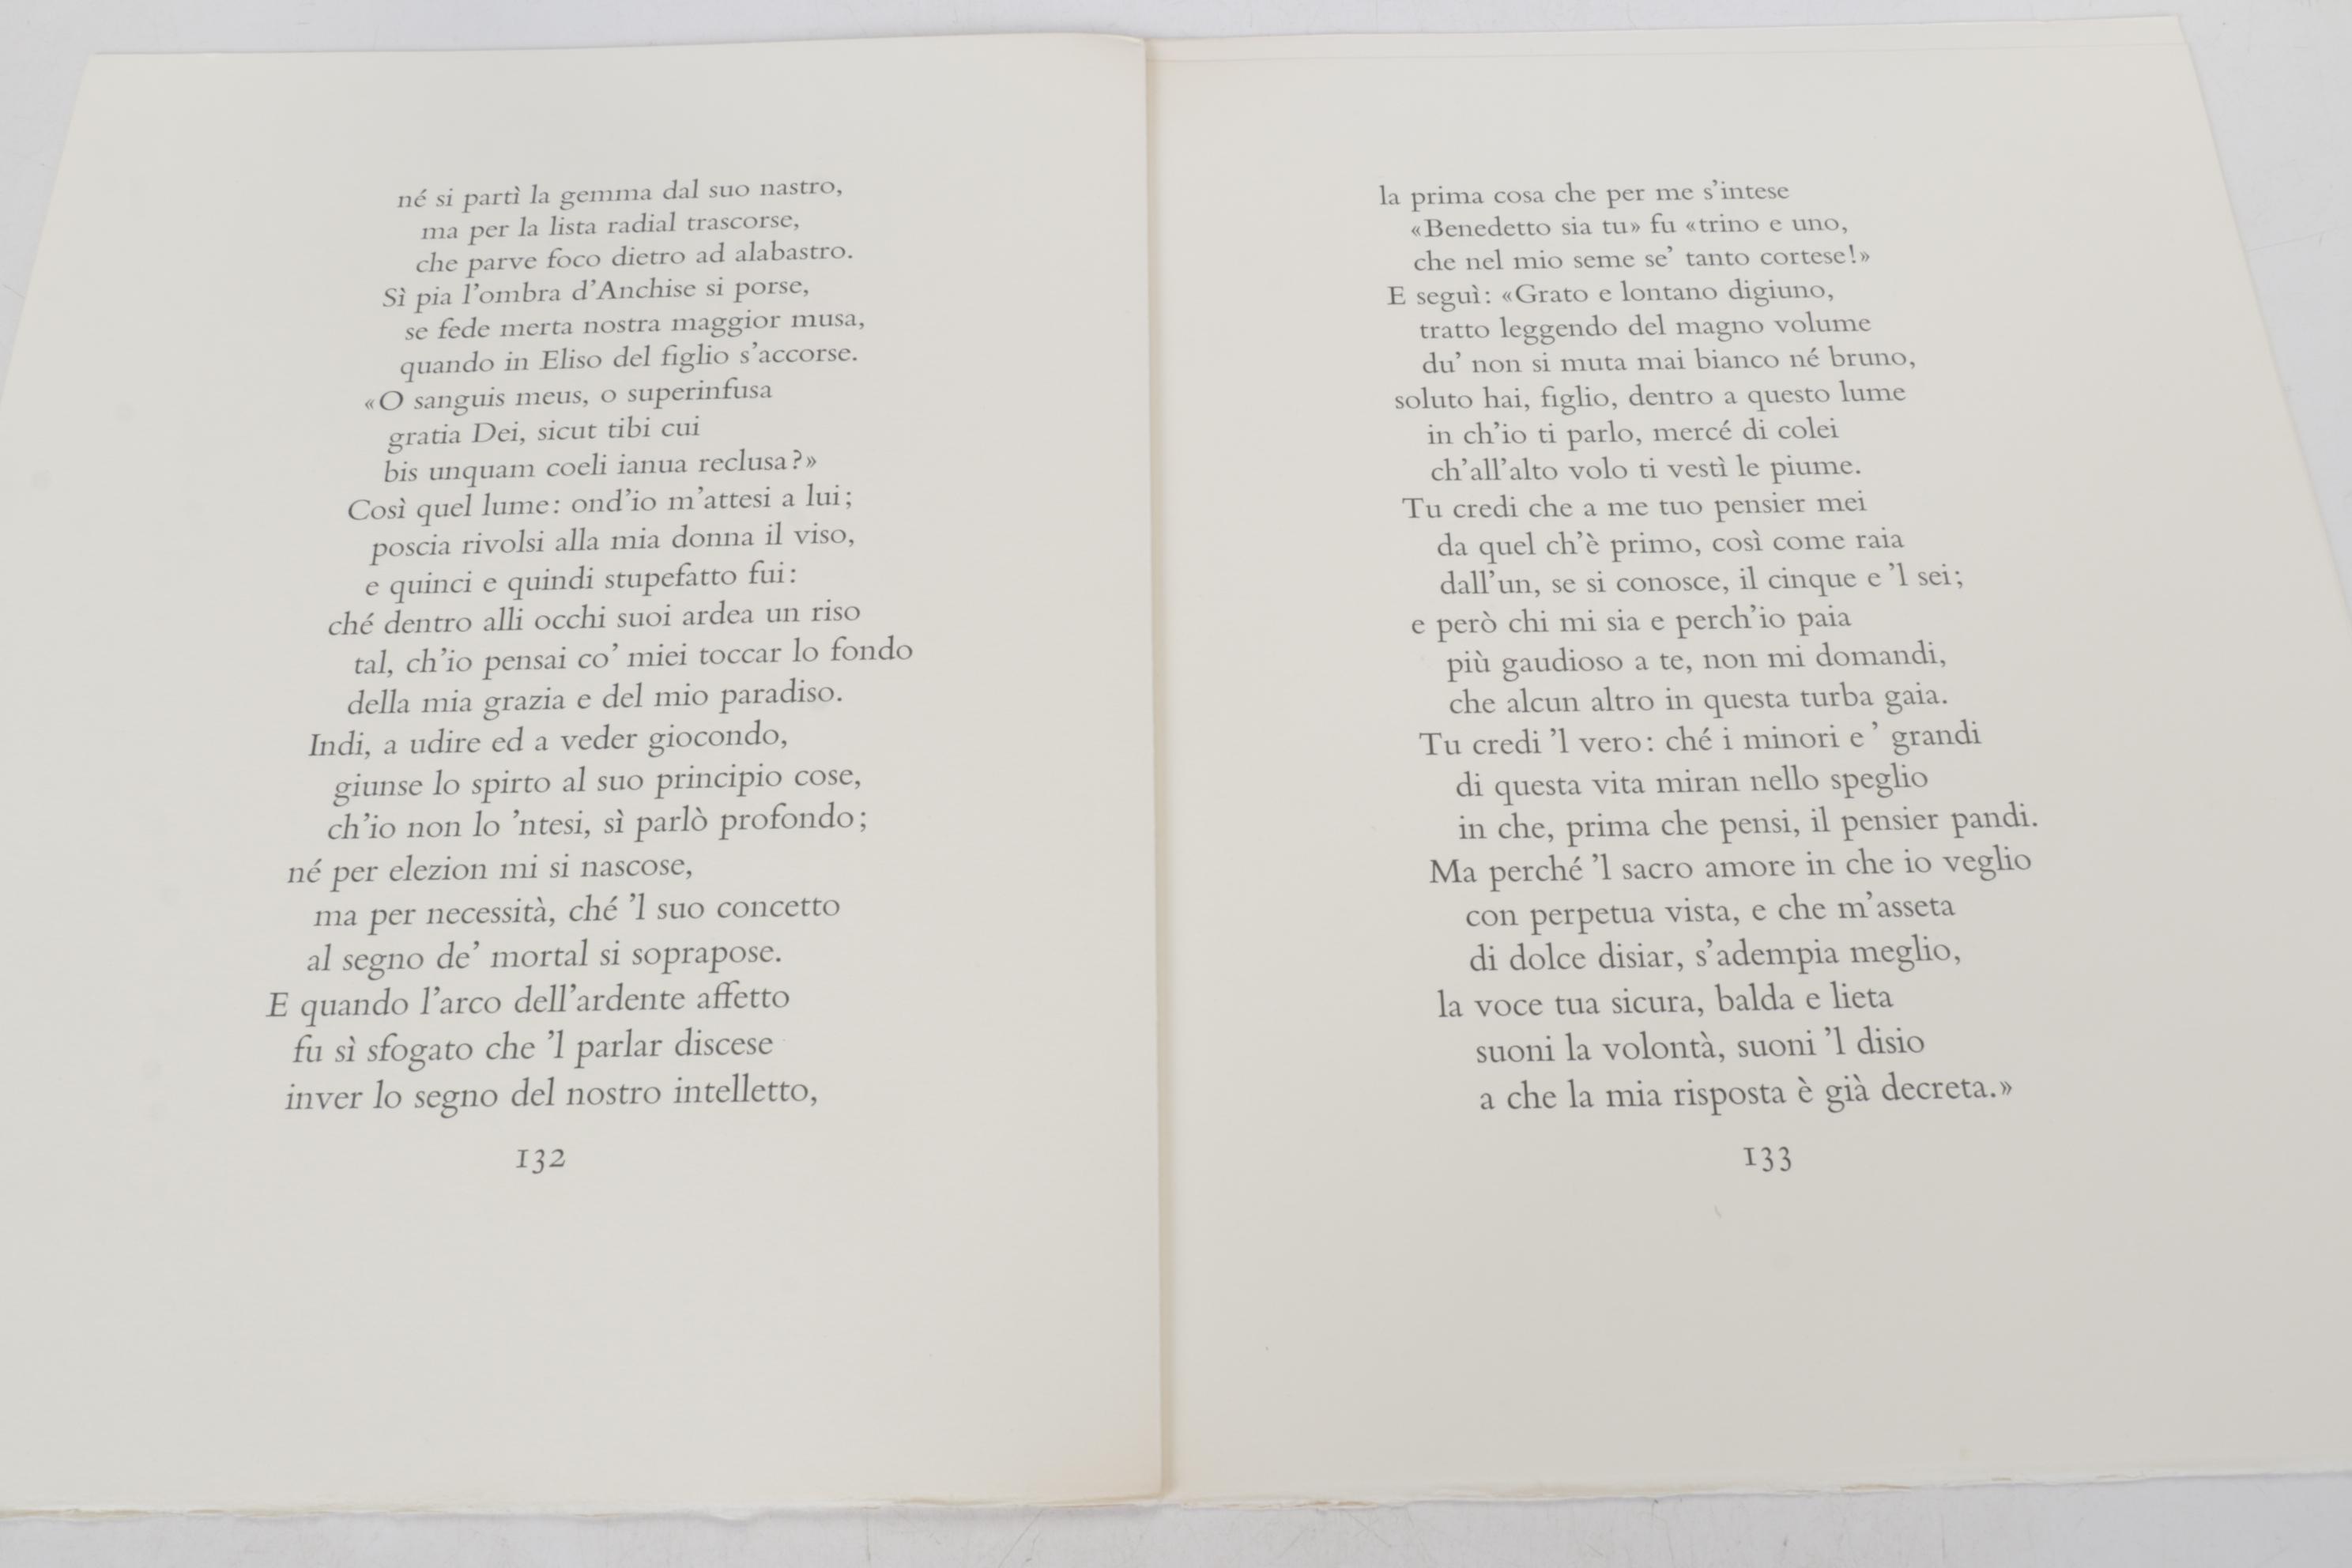 né si partì la gemma dal suo nastro,
ma per la lista radial trascorse,
che parve foco dietro ad alabastro.
Sì pia l'ombra d'Anchise si porse,
se fede merta nostra maggior musa,
quando in Eliso del figlio s'accorse.
«O sanguis meus, o superinfusa
gratia Dei, sicut tibi cui
bis unquam coeli ianua reclusa?»
Così quel lume: ond'io m'attesi a lui;
poscia rivolsi alla mia donna il viso,
e quinci e quindi stupefatto fui:
ché dentro alli occhi suoi ardea un riso
tal, ch'io pensai co' miei toccar lo fondo
della mia grazia e del mio paradiso.
Indi, a udire ed a veder giocondo,
giunse lo spirto al suo principio cose,
ch'io non lo 'ntesi, sì parlò profondo;
né per elezion mi si nascose,
ma per necessità, ché 'l suo concetto
al segno de' mortal si soprapose.
E quando l'arco dell'ardente affetto
fu sì sfogato che 'l parlar discese
inver lo segno del nostro intelletto,
132
la prima cosa che per me s'intese
«Benedetto sia tu» fu «trino e uno,
che nel mio seme se' tanto cortese!»
E seguì: «Grato e lontano digiuno,
tratto leggendo del magno volume
du' non si muta mai bianco né bruno,
soluto hai, figlio, dentro a questo lume
in ch'io ti parlo, mercé di colei
ch'all'alto volo ti vestì le piume.
Tu credi che a me tuo pensier mei
da quel ch'è primo, così come raia
dall'un, se si conosce, il cinque e 'l sei;
e però chi mi sia e perch'io paia
più gaudioso a te, non mi domandi,
che alcun altro in questa turba gaia.
Tu credi 'l vero: ché i minori e ' grandi
di questa vita miran nello speglio
in che, prima che pensi, il pensier pandi.
Ma perché 'l sacro amore in che io veglio
con perpetua vista, e che m'asseta
di dolce disiar, s'adempia meglio,
la voce tua sicura, balda e lieta
suoni la volontà, suoni 'l disio
a che la mia risposta è già decreta.»
133